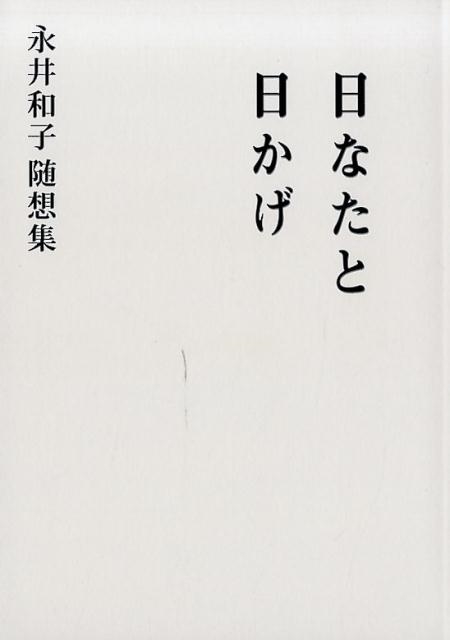 日なたと
日かげ
永井和子 随想集